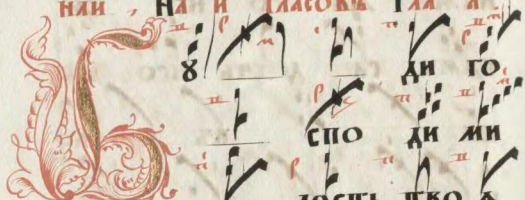 НА И ГЛАСОВЪ ГЛА А
Б Ꙋ ДИ ГО
СПО ДИ МИ
ЛОСТЬ ТВО Ѧ